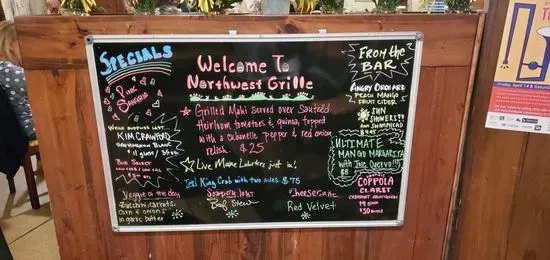 Specials
Pink
Sangria
While supplies last
Kim Crawford
Sauvignon Blanc
Bud Select
Veggie of the day
Zucchini, carrots,
Corn & onions
in garlic butter
Welcome To
Northwest Grille
Grilled Mahi served over Sauteed
Heirloom tomatoes & quinoa, topped
with a cubanelle pepper & red onion
relish $25
Live Maine Lobsters just in!
1lb King Crab with two sides $75
Soup of the day:
Beef Stew
Cheesecake
Red Velvet
From the
Bar
Angry Orchard
Peach Mango
Fruit Cider
Sun
Showers!!!
Rum Shaphead
$4.95
Ultimate
Mango Margarita
with Jose Cuervo!!!
$8
Coppola
Claret
Cabernet Sauvignon
$9 glass
$30 bottle
Friday, April 14 & Saturday